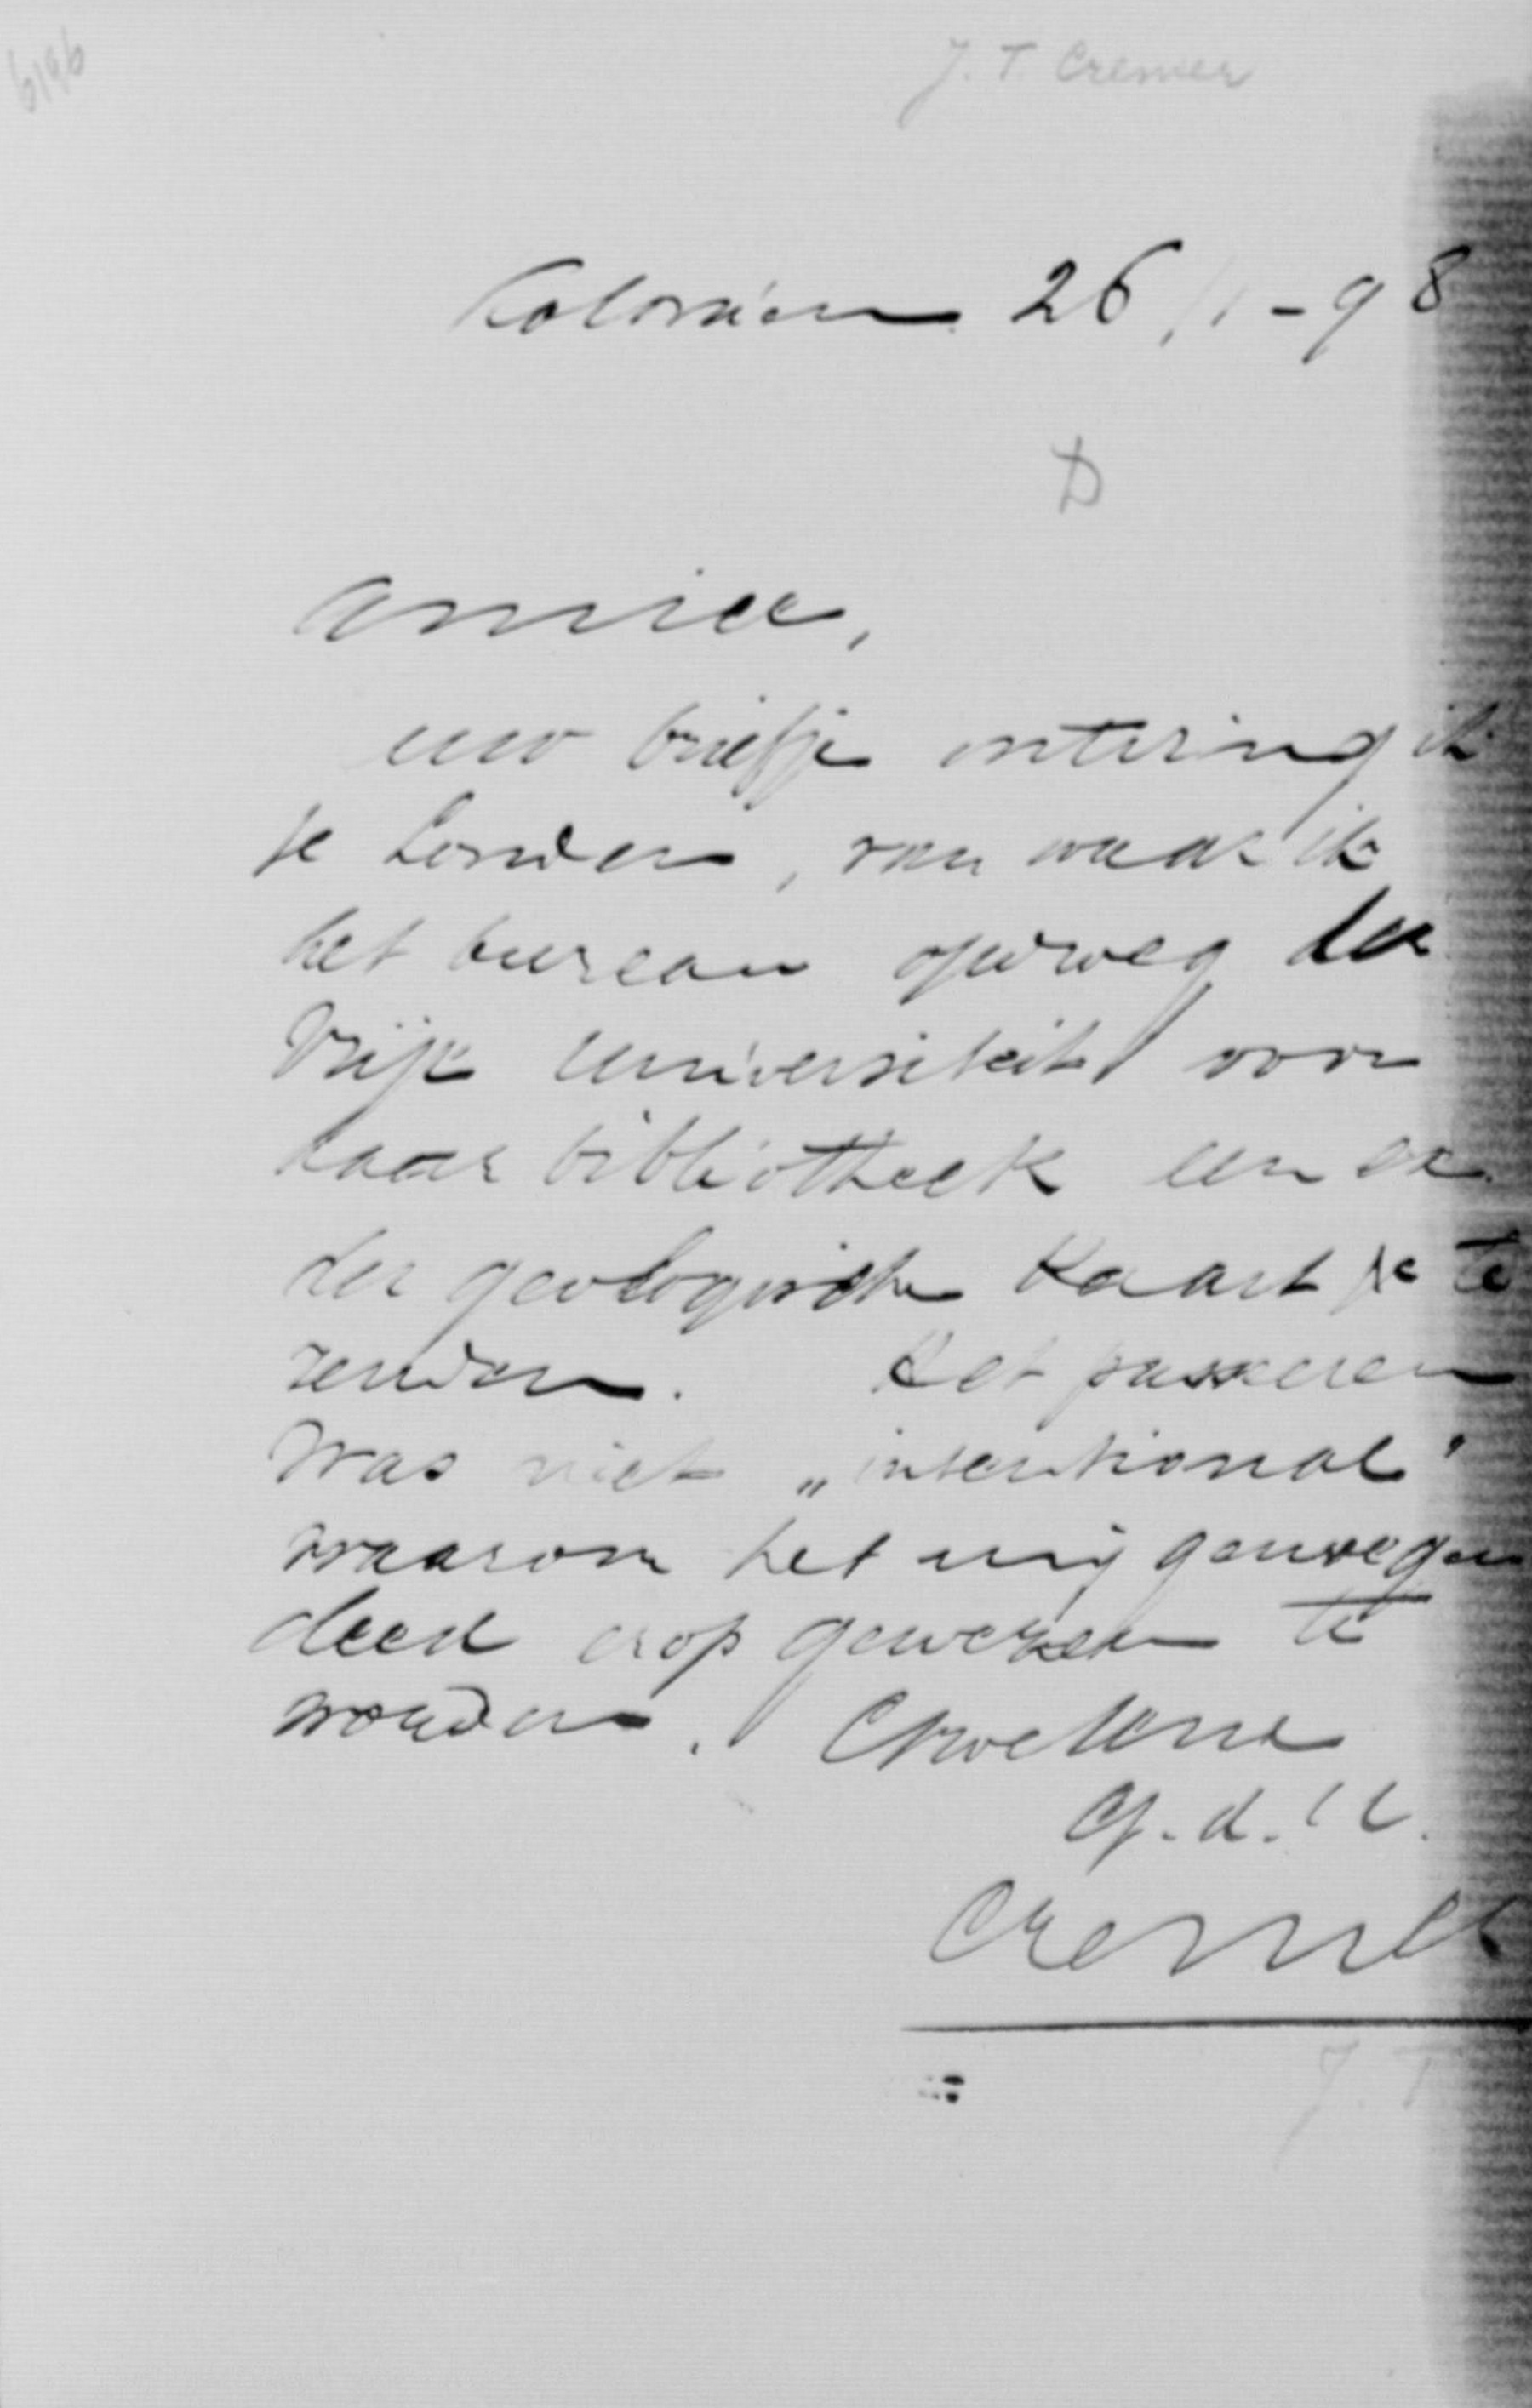 6196
J. T. Cremer
Koloniën 26/1-98
D
Amice,
uw briefje ontving ik
te Londen, van waar ik
het bureau opdroeg der
Vrije Universiteit voor
haar bibliotheek een ex.
der geologische kaart te
zenden. Het passeren
was niet „intentional"
waarom het mij genoegen
deed erop gewezen te
worden. 
Cremer
J. T